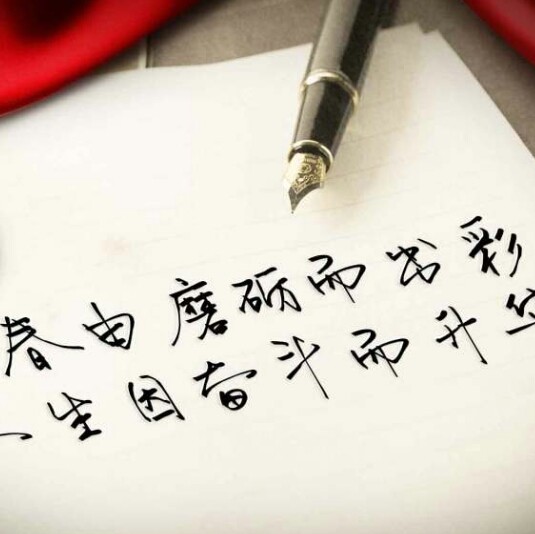 春由磨砺而出彩
人生因奋斗而升华